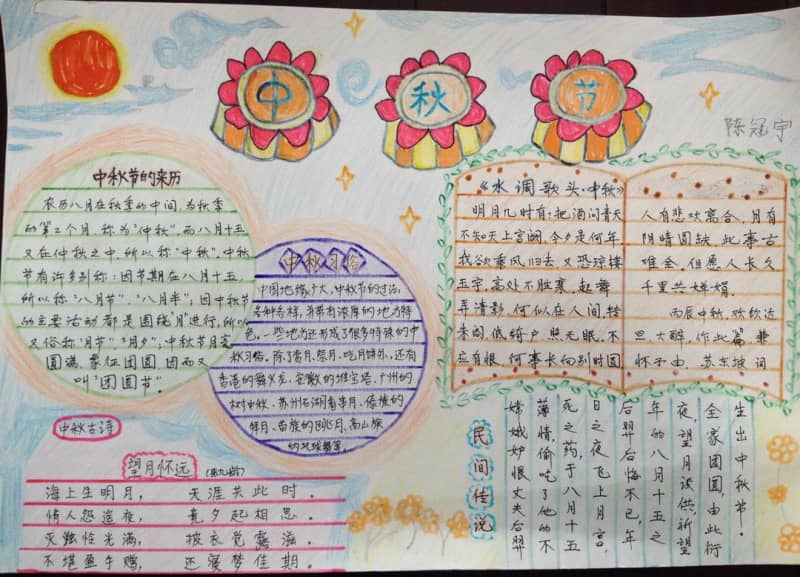 中秋节
陈冠宇
中秋节的来历
农历八月在秋季的中间，为秋季
的第二个月，称为“仲秋”，而八月十五
又在仲秋之中，所以称“中秋”。中秋
节有许多别称：因节期在八月十五，
所以称“八月节”、“八月半”；因中秋节
的主要活动都是围绕“月”进行，所以
又俗称“月节”、“月夕”；中秋节月亮
圆满，象征团圆，因而又
叫“团圆节”。
中秋习俗
中国地缘广大，中秋节的过法，
各种各样，并带有浓厚的地方特
色。一些地方还形成了很多特殊的中
秋习俗。除了赏月、祭月、吃月饼外，还有
香港的舞火龙、安徽的堆宝塔、广州的
树中秋、苏州石湖看串月、傣族的
拜月、苗族的跳月、高山族
的托球舞等。
《水调歌头·中秋》
明月几时有？把酒问青天
不知天上宫阙，今夕是何年，
我欲乘风归去，又恐琼楼
玉宇，高处不胜寒，起舞
弄清影，何似在人间。转
朱阁，低绮户，照无眠。不
应有恨，何事长向别时圆
人有悲欢离合，月有
阴晴圆缺，此事古
难全。但愿人长久
千里共婵娟。
丙辰中秋，欢饮达
旦，大醉，作此篇，兼
怀子由。苏东坡词
中秋古诗
望月怀远
海上生明月， 天涯共此时。
情人怨遥夜， 竟夕起相思。
灭烛怜光满， 披衣觉露滋。
不堪盈手赠， 还寝梦佳期。
民间传说
嫦娥妒恨丈夫后羿
薄情，偷吃了他的不
死之药，于八月十五
日之夜飞上月宫，
后羿后悔不已，年
年的八月十五之
夜，望月谈供，祈望
全家团圆，由此衍
生出中秋节。